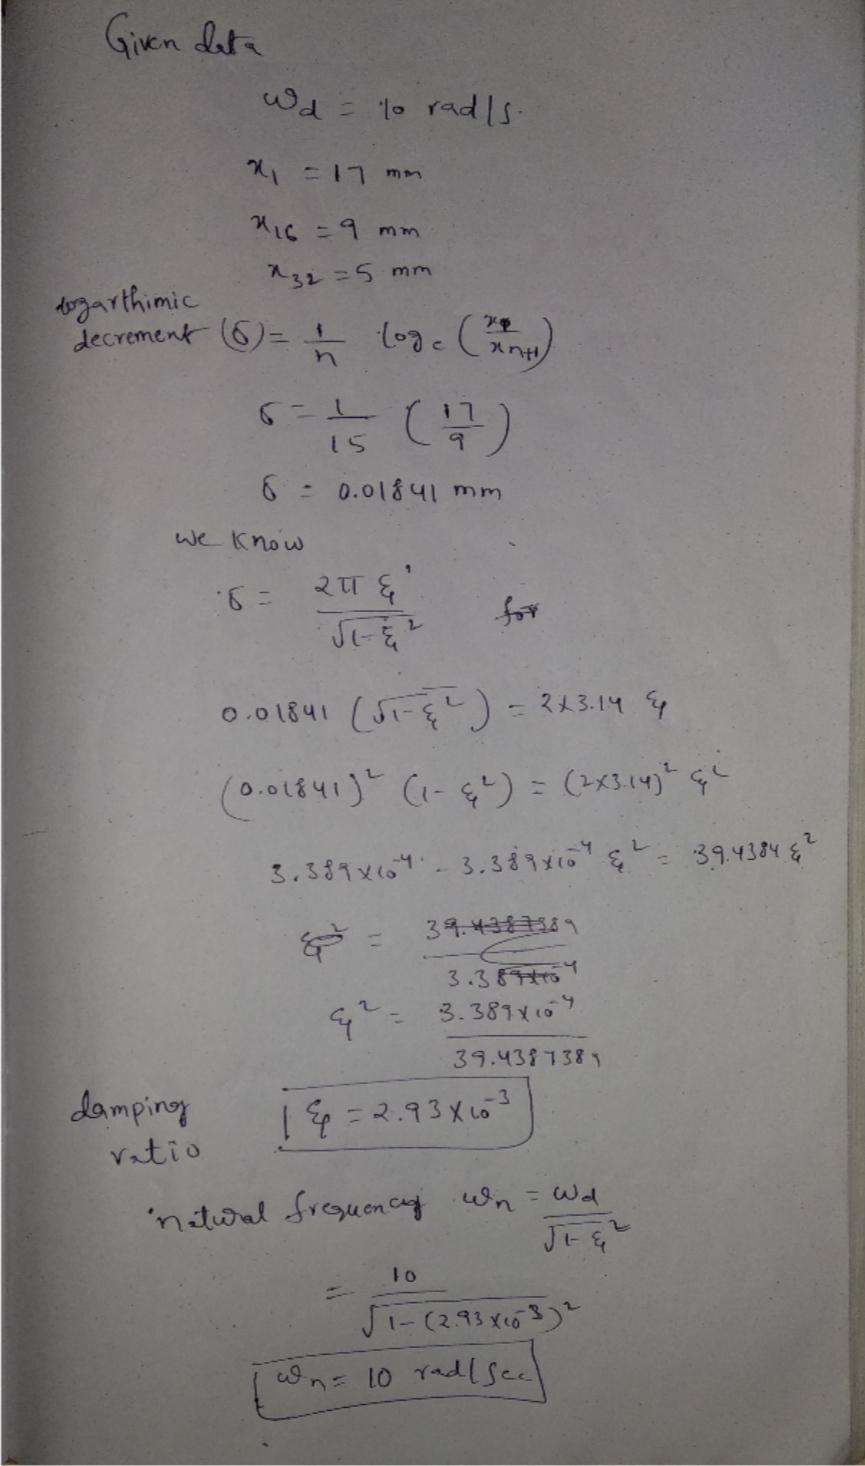 Given data
ωd = 10 rad/s.
x₁ = 17 mm
x₁₆ = 9 mm
x₃₂ = 5 mm
logarthimic
decrement (δ) = 1/n logₑ (x₁/xₙ₊₁)
δ = 1/15 (17/9)
δ = 0.01841 mm
we know
δ = 2π ξ / √1-ξ²
0.01841 (√1-ξ²) = 2x3.14 ξ
(0.01841)² (1-ξ²) = (2x3.14)² ξ²
3.389x10⁻⁴ - 3.389x10⁻⁴ ξ² = 39.4384 ξ²
ξ² = 39.4387389 / 3.389x10⁻⁴
ξ² = 3.389x10⁻⁴ / 39.4387389
damping
ratio
ξ = 2.93x10⁻³
natural frequency ωn = ωd / √1-ξ²
= 10 / √1-(2.93x10⁻³)²
ωn = 10 rad/sec